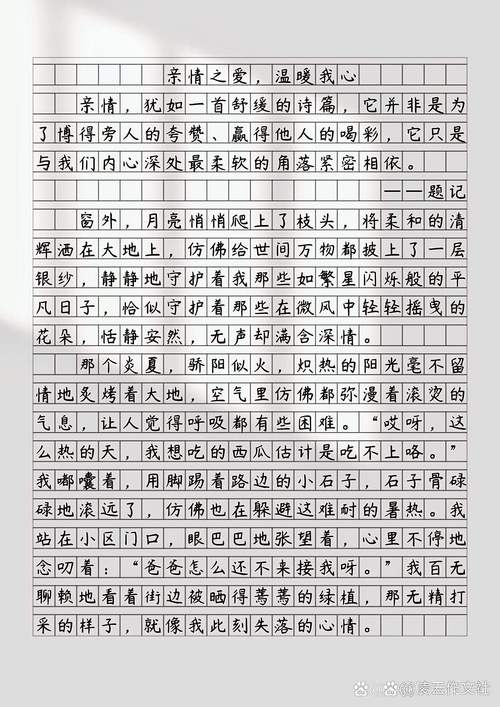 亲情之爱，温暖我心
亲情，犹如一首舒缓的诗篇，它并非是为
了博得旁人的夸赞、赢得他人的喝彩，它只是
与我们内心深处最柔软的角落紧密相依。
——题记
窗外，月亮悄悄爬上了枝头，将柔和的清
辉洒在大地上，仿佛给世间万物都披上了一层
银纱，静静地守护着我那些如繁星闪烁般的平
凡日子，恰似守护着那些在微风中轻轻摇曳的
花朵，恬静安然，无声却满含深情。
那个炎夏，骄阳似火，炽热的阳光毫不留
情地炙烤着大地，空气里仿佛都弥漫着滚烫的
气息，让人觉得呼吸都有些困难。“哎呀，这
么热的天，我想吃的西瓜估计是吃不上咯。”
我嘟囔着，用脚踢着路边的小石子，石子骨碌
碌地滚远了，仿佛也在躲避这难耐的暑热。我
站在小区门口，眼巴巴地张望着，心里不停地
念叨着：“爸爸怎么还不来接我呀。”我百无
聊赖地看着街边被晒得蔫蔫的绿植，那无精打
采的样子，就像我此刻失落的心情。
凌云作文社